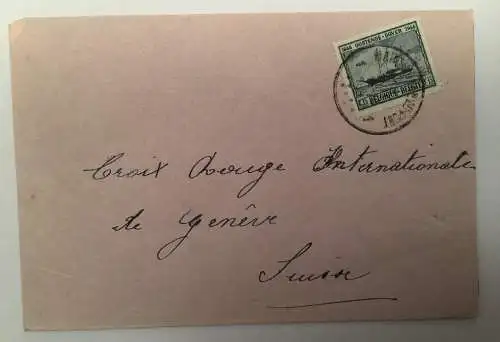 1846 OOSTENDE - DOVER 1946
BELGIQUE - BELGIE
Croix Rouge Internationale
de Genève
Suisse